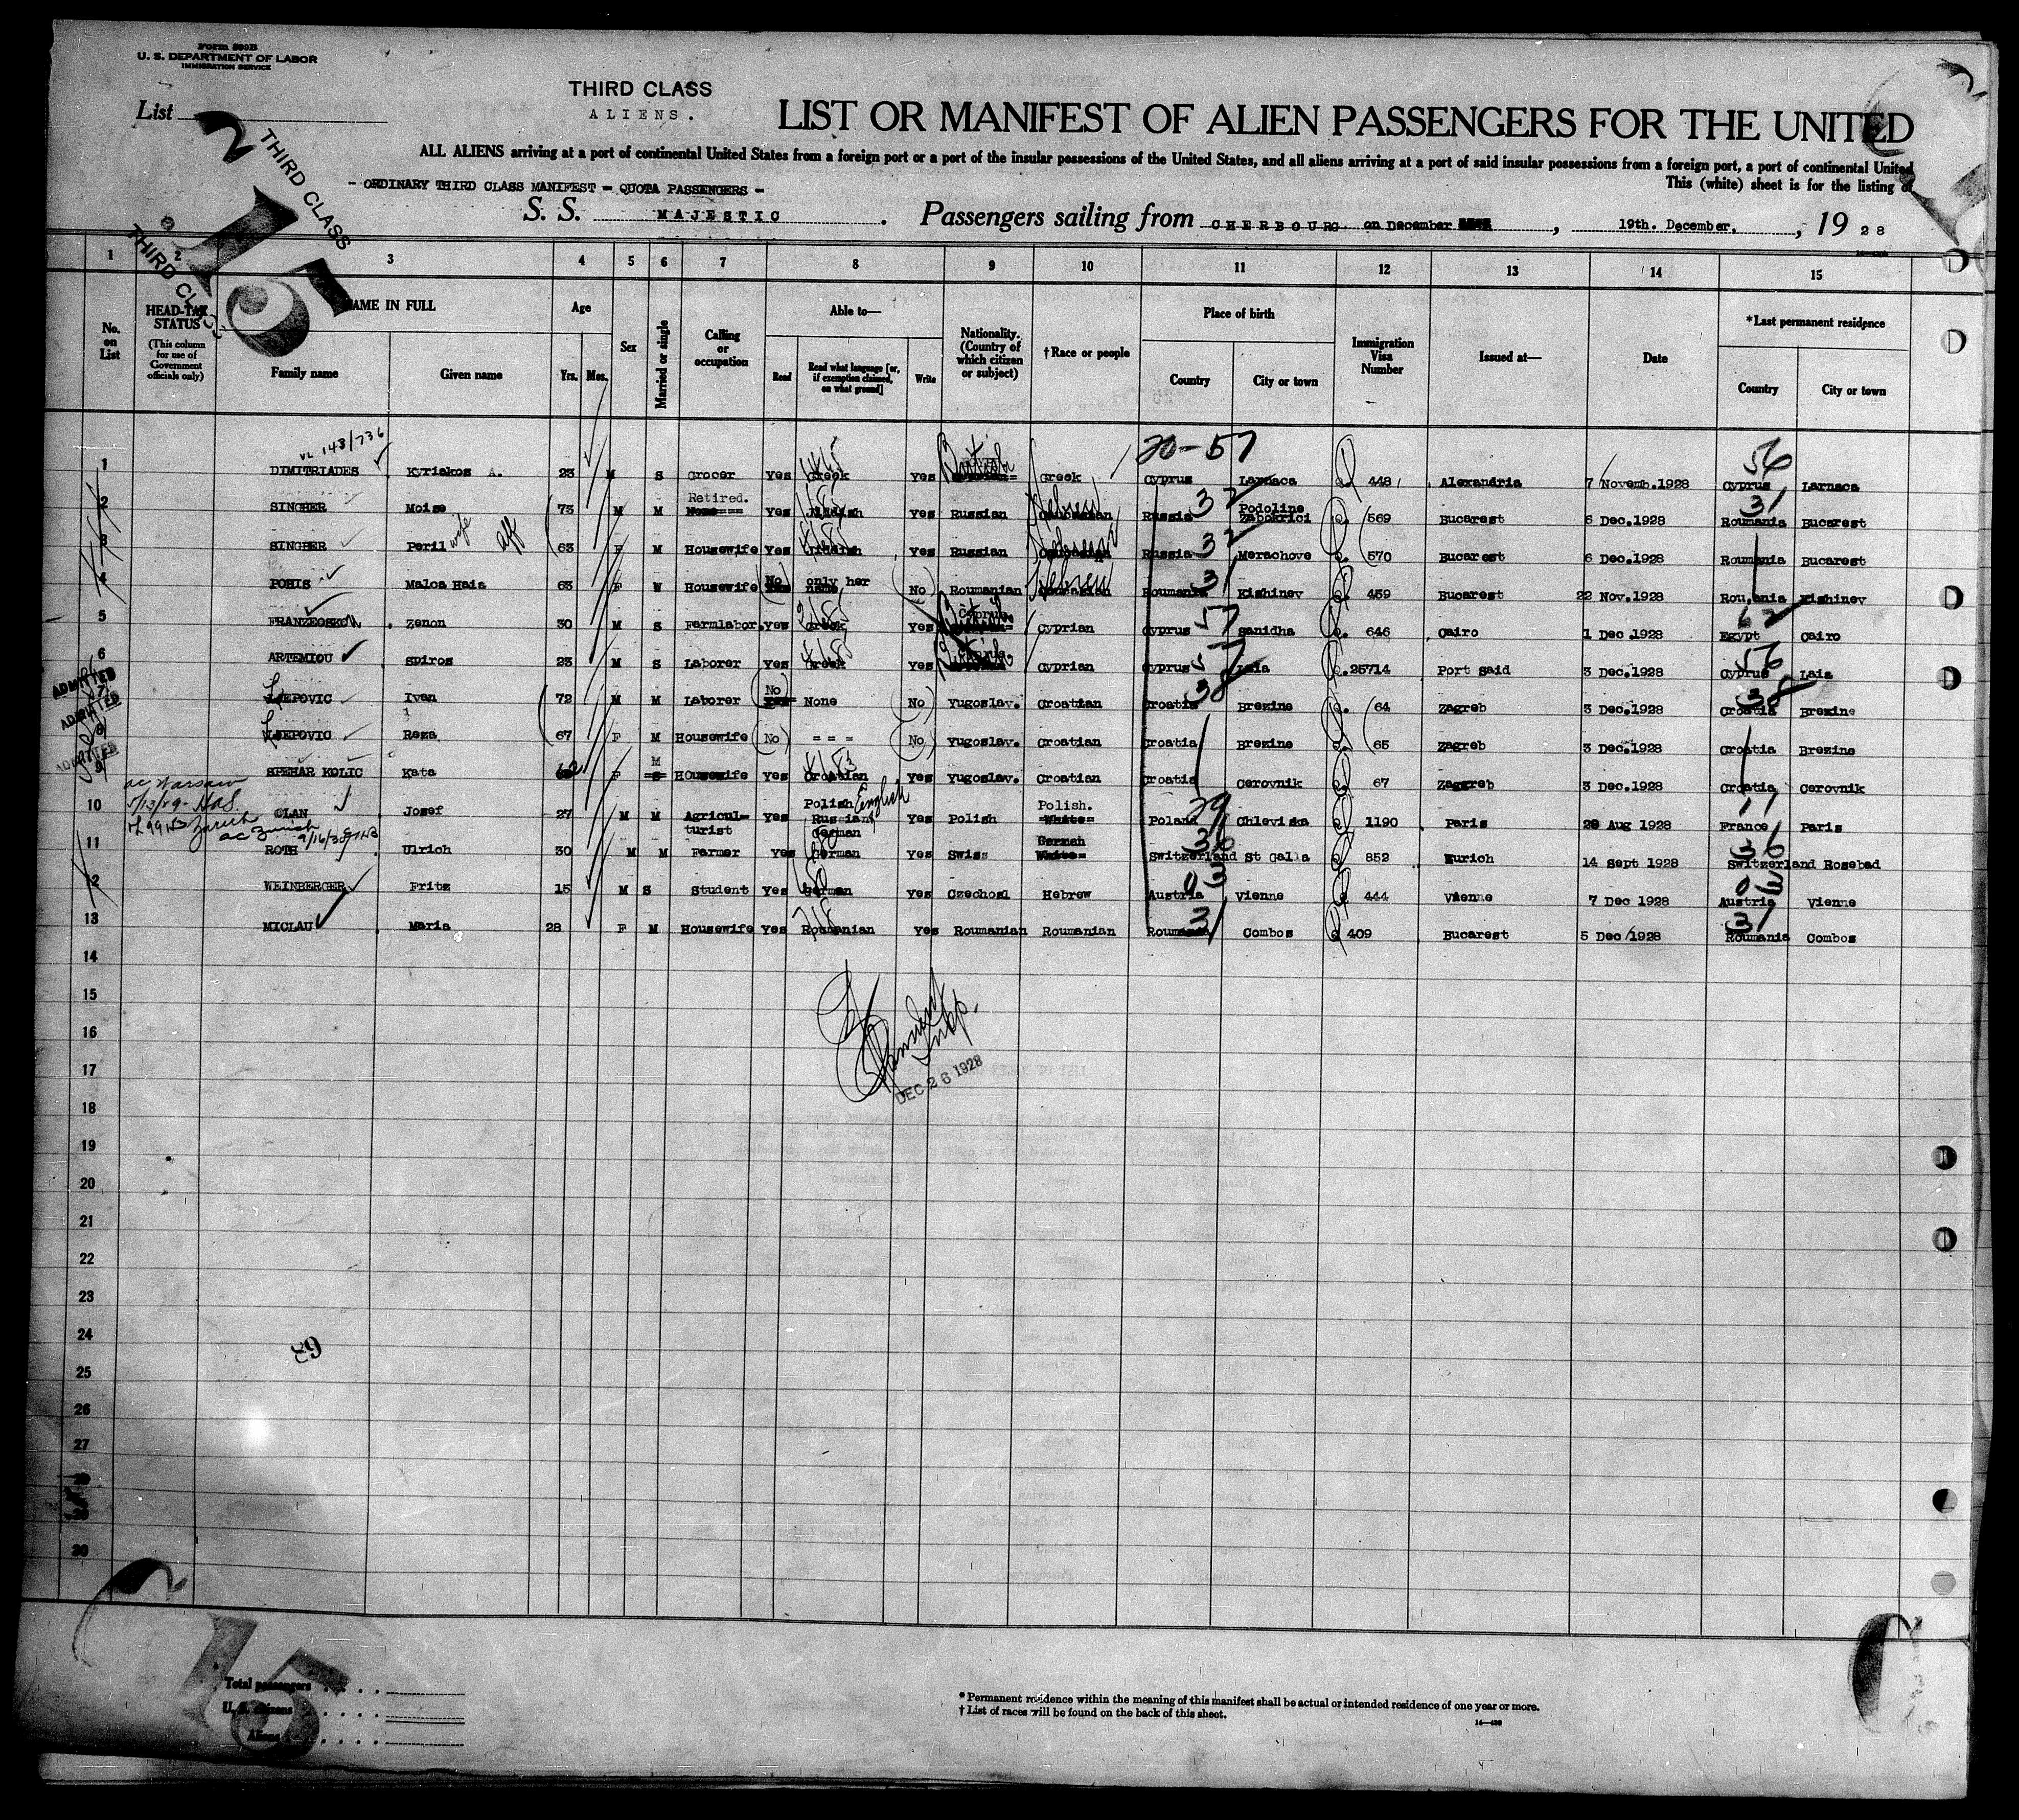 Form 500B
U. S. DEPARTMENT OF LABOR
IMMIGRATION SERVICE
List
2
THIRD CLASS
THIRD CLASS
15
THIRD CLASS
ALIENS.
LIST OR MANIFEST OF ALIEN PASSENGERS FOR THE UNITED
ALL ALIENS arriving at a port of continental United States from a foreign port or a port of the insular possessions of the United States, and all aliens arriving at a port of said insular possessions from a foreign port, a port of continental United
This (white) sheet is for the listing of
- ORDINARY THIRD CLASS MANIFEST - QUOTA PASSENGERS -
S. S. MAJESTIC. Passengers sailing from CHERBOURG on December, 19th. December., 19 28
1 2 3 4 5 6 7 8 9 10 11 12 13 14 15
No. on List
HEAD-TAX STATUS
(This column for use of Government officials only)
NAME IN FULL
Family name
Given name
Age
Yrs. Mos.
Sex
Married or single
Calling or occupation
Able to—
Read
Read what language [or, if exemption claimed, on what ground]
Write
Nationality. (Country of which citizen or subject)
†Race or people
Place of birth
Country
City or town
Immigration Visa Number
Issued at—
Date
*Last permanent residence
Country
City or town
143/736
20-57
56
1 DIMITRIADES Kyriakos A. 23 M S Grocer Yes Greek Yes British Greek Cyprus Larnaca 448 Alexandria 7 Novemb.1928 Cyprus Larnaca
Retired. Podoline 32 31
2 SINGHER Moise 73 M M None Yes Jiddish Yes Russian Hebrew Russia Zabokrici 569 Bucarest 6 Dec.1928 Roumania Bucarest
3 SINGHER Peril wife aff 63 F M Housewife Yes Jiddish Yes Russian Hebrew Russia 32 Merachove 570 Bucarest 6 Dec.1928 Roumania Bucarest
4 POHIS Malca Haia 63 F W Housewife No only her name No Roumanian Hebrew Roumania 31 Kishinev 459 Bucarest 22 Nov.1928 Roumania Kishinev
5 FRANZEOSKOU Zenon 30 M S Farmlabor. Yes Greek Yes British Cyprian Cyprus 57 Sanidha 646 Cairo 1 Dec.1928 Egypt 62 Cairo
6 ARTEMIOU Spiros 23 M S Laborer Yes Greek Yes British Cyprian Cyprus 57 Laia 25714 Port said 3 Dec.1928 Cyprus 56 Laia
ADMITTED
LJEPOVIC Ivan 72 M M Laborer No None No Yugoslav. Croatian Croatia 38 Brezine 64 Zagreb 3 Dec.1928 Croatia 38 Brezine
ADMITTED
LJEPOVIC Reza 67 F M Housewife No = = = No Yugoslav. Croatian Croatia Brezine 65 Zagreb 3 Dec.1928 Croatia Brezine
ADMITTED
SPEHAR KOLIC Kata 62 F M Housewife Yes Croatian Yes Yugoslav. Croatian Croatia Cerovnik 67 Zagreb 3 Dec.1928 Croatia Cerovnik
ac Warsaw
5/13/29
Zurich
ac Zurich
9/16/30
10 OLAN Josef 27 M M Agricul-turist Yes Polish Russian English Yes Polish Polish. White Poland 29 Chleviska 1190 Paris 29 Aug 1928 France 17 Paris
11 ROTH Ulrich 30 M M Farmer Yes German German Yes Swiss German White Switzerland 36 St Galla 852 Zurich 14 Sept 1928 Switzerland 36 Rosebad
12 WEINBERGER Fritz 15 M S Student Yes German Yes Czechosl Hebrew Austria 03 Vienne 444 Vienne 7 Dec 1928 Austria 03 Vienne
13 MICLAU Maria 28 F M Housewife Yes Roumanian Yes Roumanian Roumanian Roumania 31 Combos 409 Bucarest 5 Dec 1928 Roumania 31 Combos
14
15
Insp.
16
17
DEC 26 1928
18
19
20
21
22
23
24
63
25
26
27
28
29
30
15
Total passengers
U. S. citizens
Aliens
* Permanent residence within the meaning of this manifest shall be actual or intended residence of one year or more.
† List of races will be found on the back of this sheet.